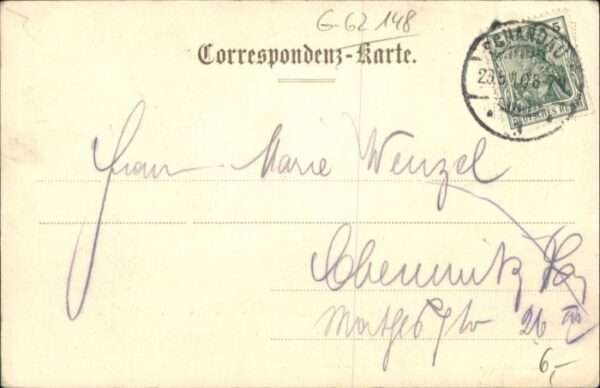 G-62 148
Correspondenz-Karte.
SCHANDAU
5
DEUTSCHES REICH
Frau Marie Wenzel
Chemnitz
26
6,-